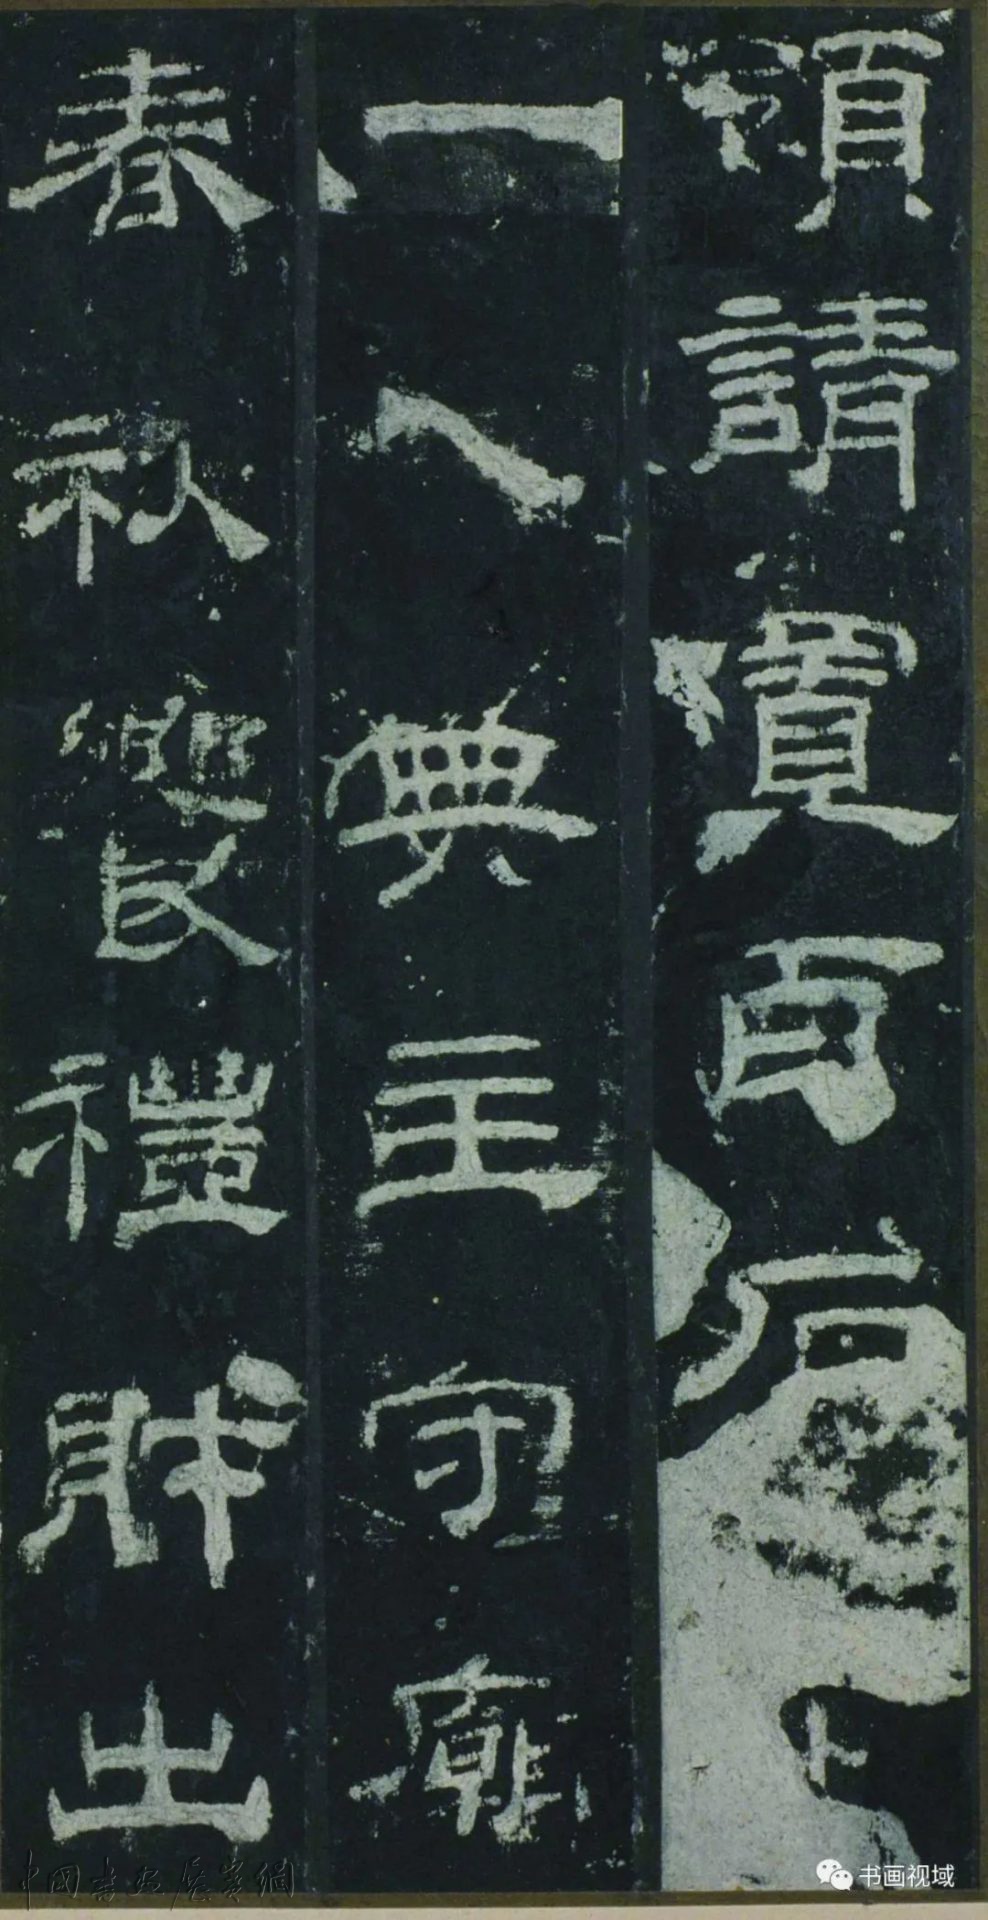 領請置百石
一人典主守廟
春秋饗禮財出
中国书画展赏网
书画视域